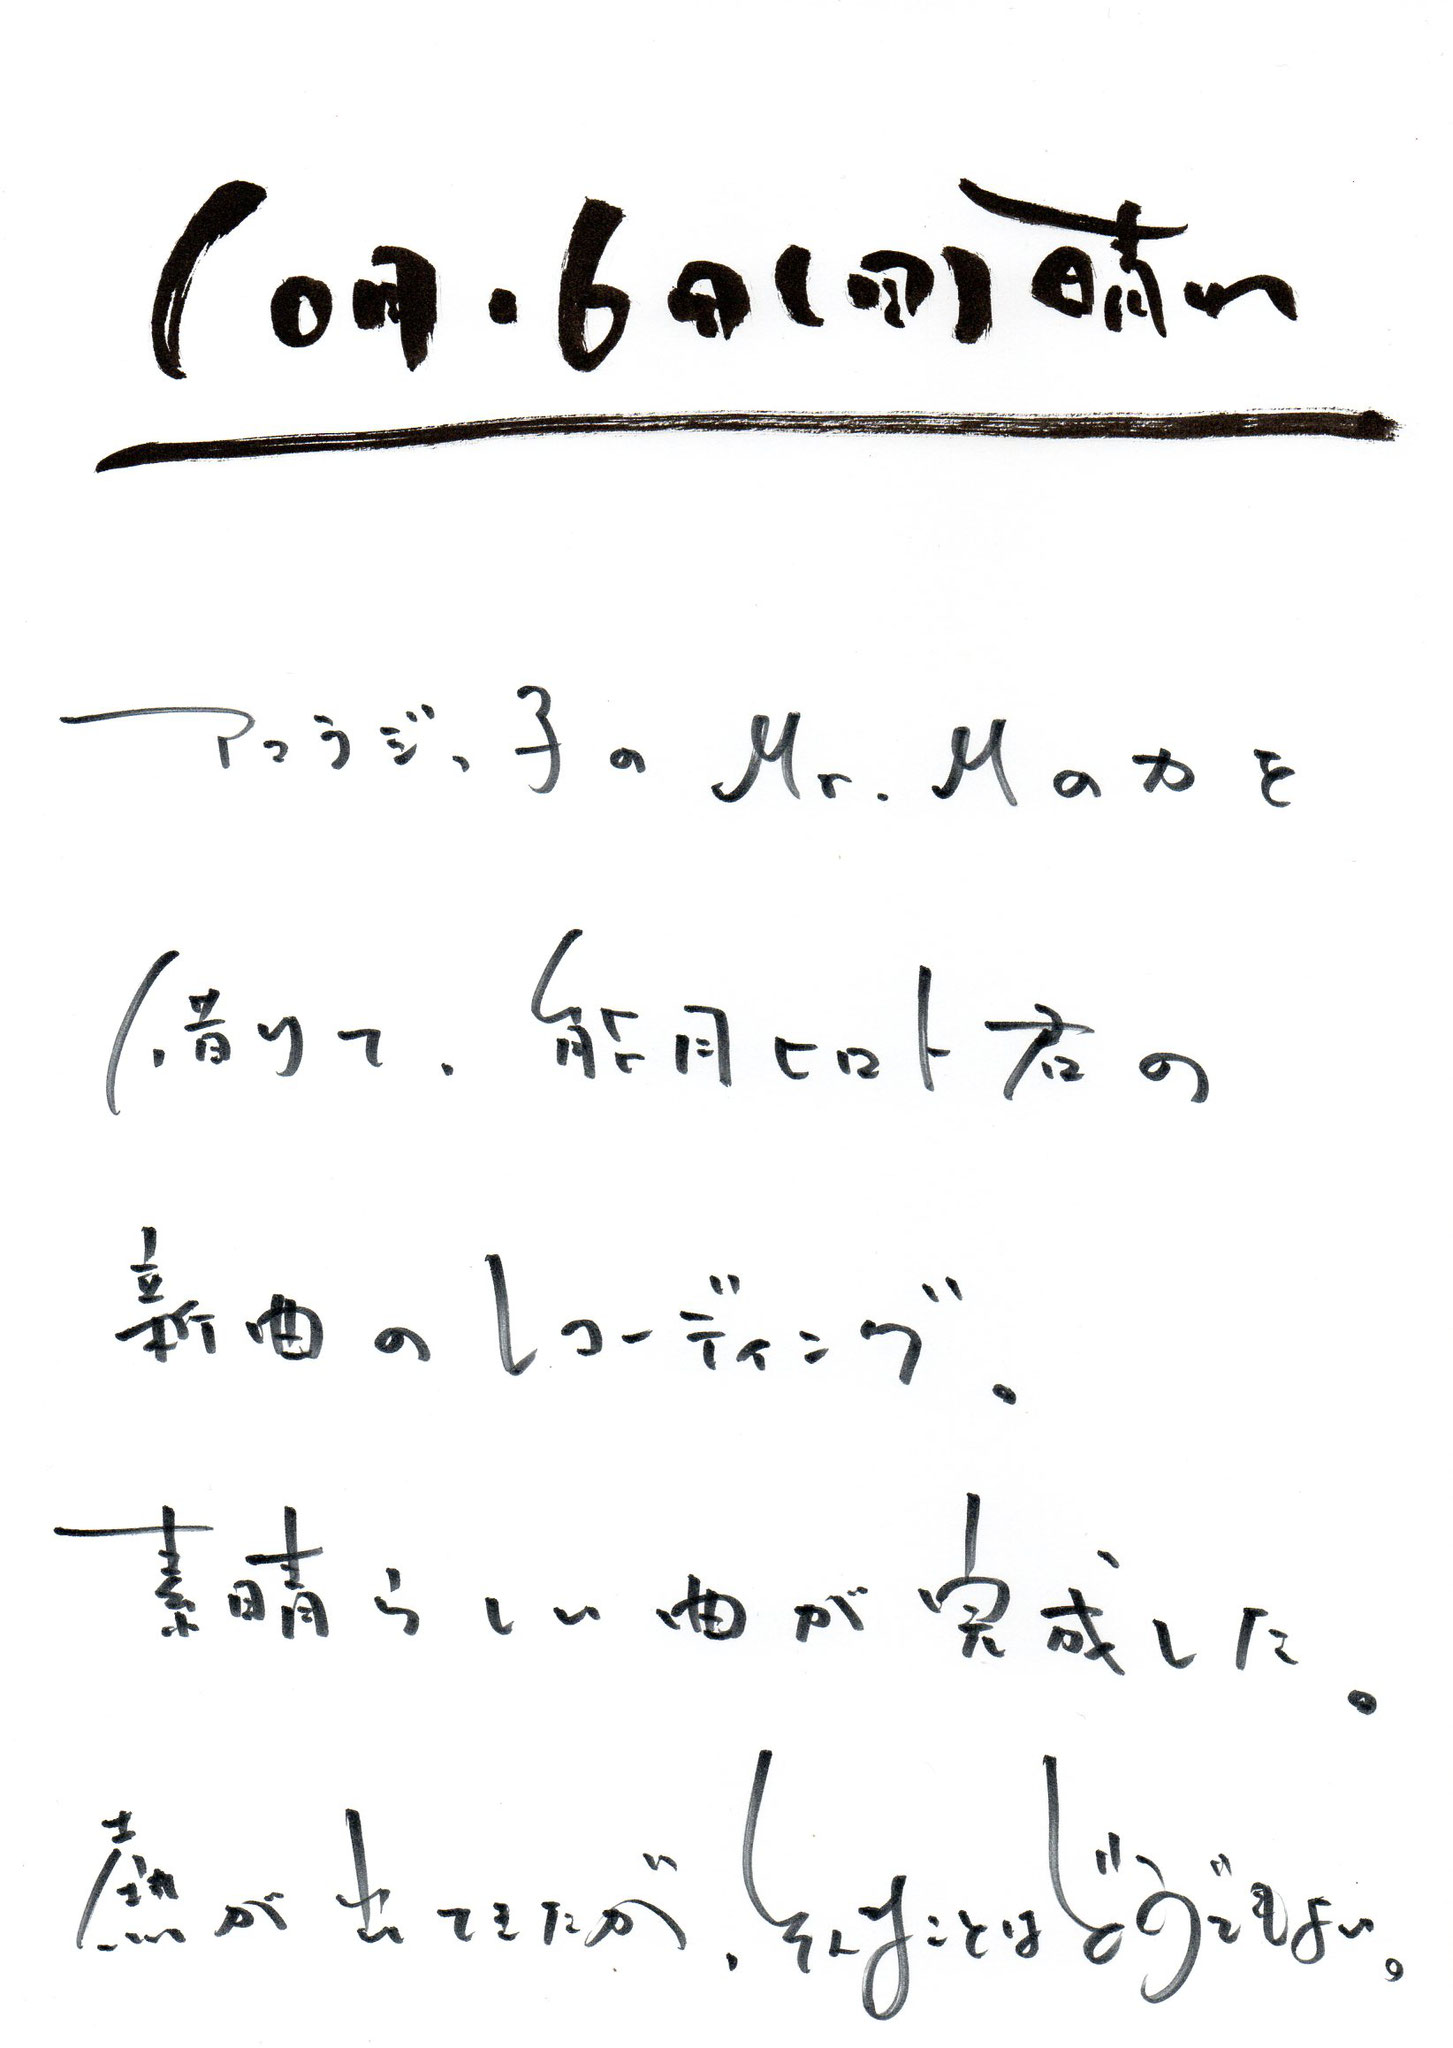 10月・6日(日)晴れ
アコラジっ子の Mr. M の力を
借りて、能月ヒロト君の
新曲のレコーディング。
素晴らしい曲が完成した。
熱が出てきたが、そんなことはどうでもよい。